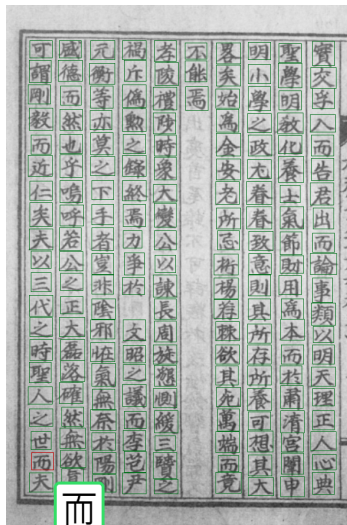 實交孚入而告君出而論事類以明天理正人心典
聖學明敎化養士氣節財用爲本而於肅淸宮闈申
明小學之政尤眷眷致意則其所存所養可想其大
畧矣始爲金安老所忌術楊存棘欲其死萬端而竟
不能焉
孝陵禮陟時衆大變公以諫長周旋懇惻緩三賢之
禍斥僞勳之錄終焉力爭於文昭之議而李芑尹
元衡等亦莫之下手者豈非陰邪怯氣無奈於陽剛
盛德而然也乎嗚呼若公之正大磊落確然無欲眞
可謂剛毅而近仁矣夫以三代之時聖人之世而夫
而